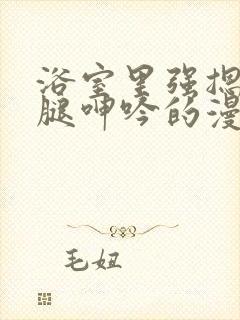 浴室里强摁
腿呻吟的漫
毛妞